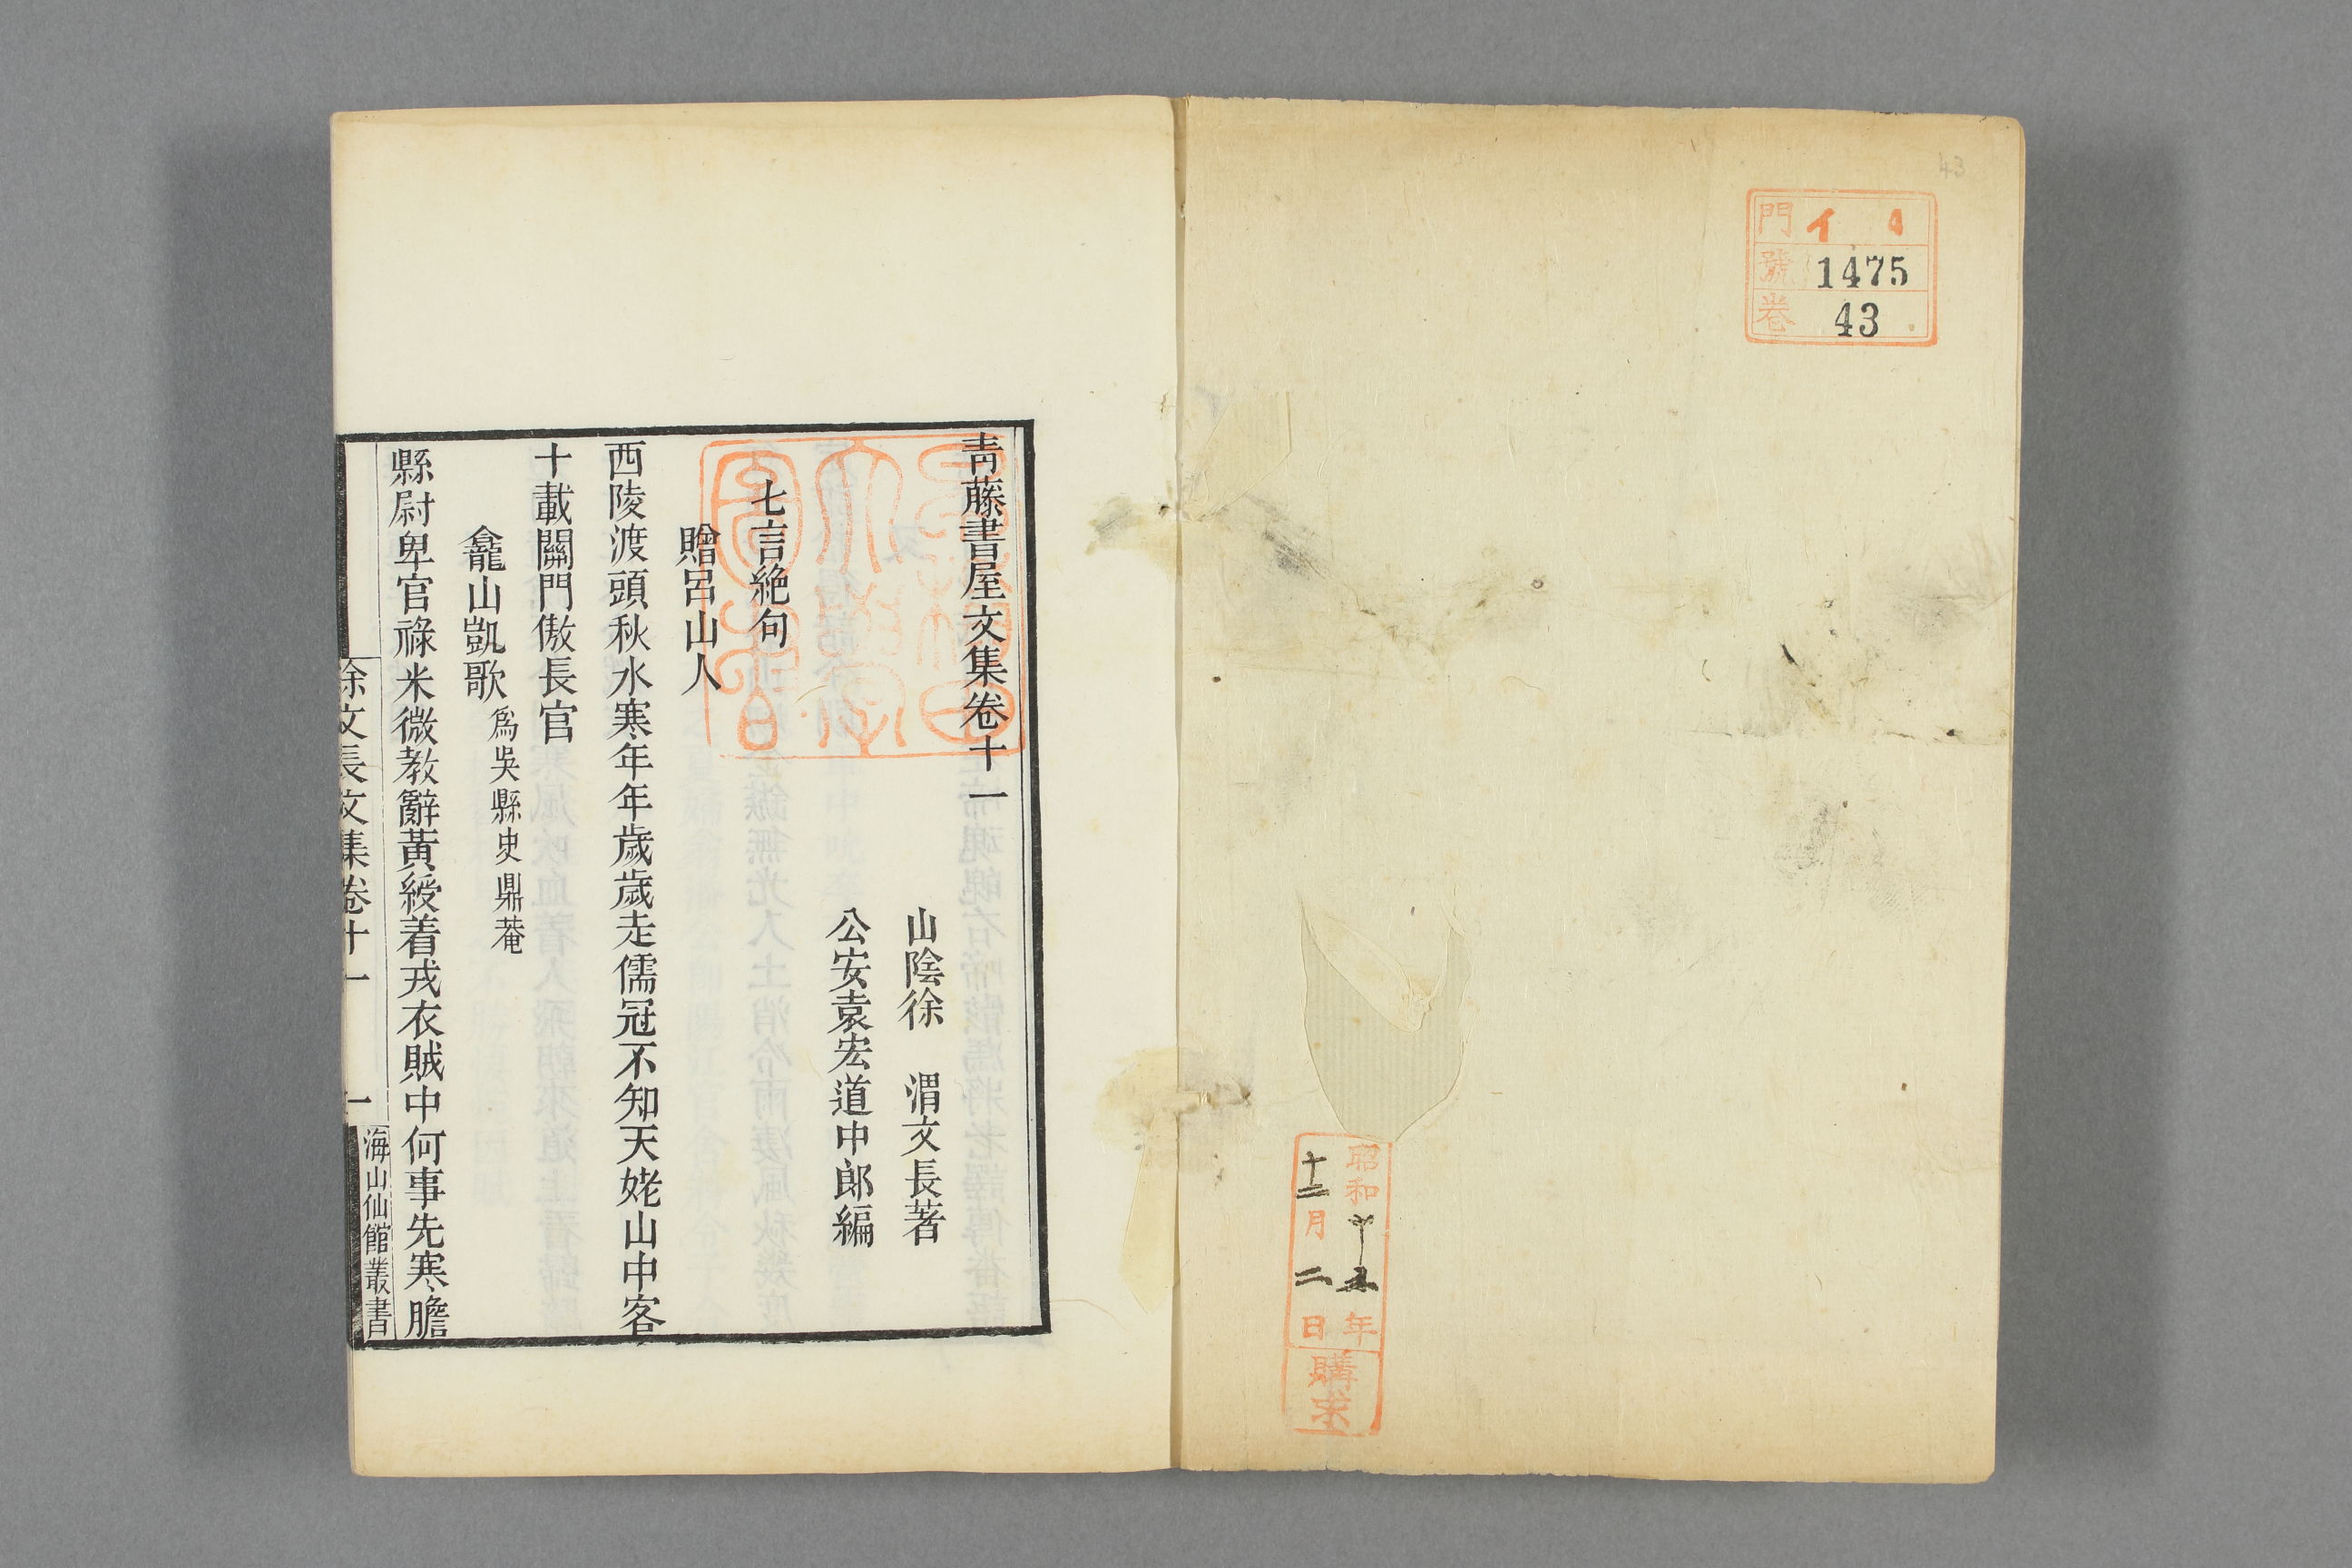 43
門 イ 4
號 1475
卷 43
昭和十五年
十二月二日
購求
靑藤書屋文集卷十一
山陰徐 渭文長著
公安袁宏道中郎編
七言絶句
贈呂山人
西陵渡頭秋水寒年年歲歲走儒冠不知天姥山中客
十載關門傲長官
龕山凱歌 爲吳縣史鼎菴
縣尉卑官祿米微教辭黃綬着戎衣賊中何事先寒膽
徐文長文集卷十一
一
海山仙館叢書